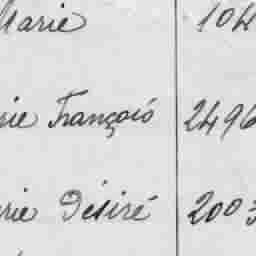 Marie 104
rie François 2496
rie Désiré 2003